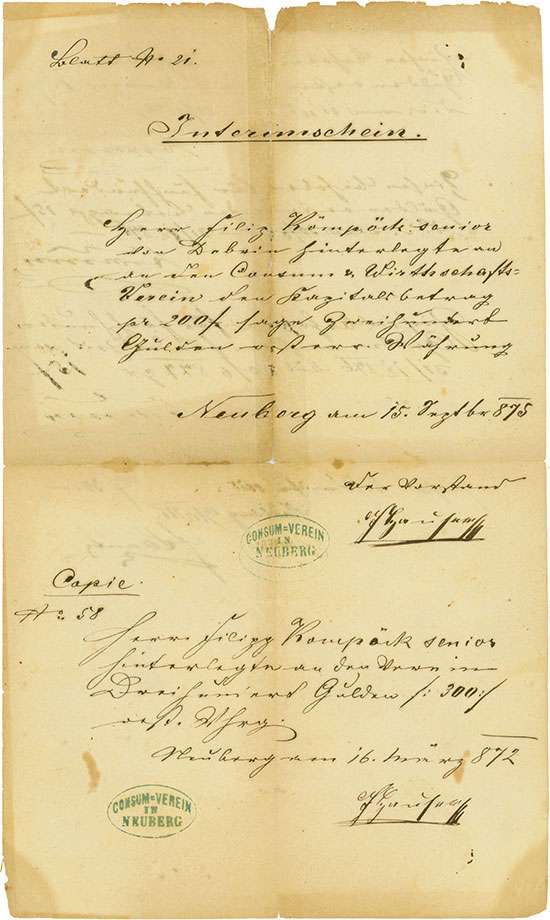 Blatt No 21.
Interimschein.
Herr Filip Kömpöck senior
von Debrin hinterlegte an
an den Consum & Wirthschafts-
Verein den Kapitalsbetrag
pr 200 f sage Zweihundert
Gulden oesterr. Währung
Neuberg am 15. Septbr 875
Der Vorstand
CONSUM=VEREIN
IN
NEUBERG
Copie.
No 58
Herr Filipp Kompöck senior
hinterlegte an den Verein
Dreihundert Gulden f: 300:f
oest. Whrg.
Neuberg am 16. März 872
CONSUM=VEREIN
IN
NEUBERG